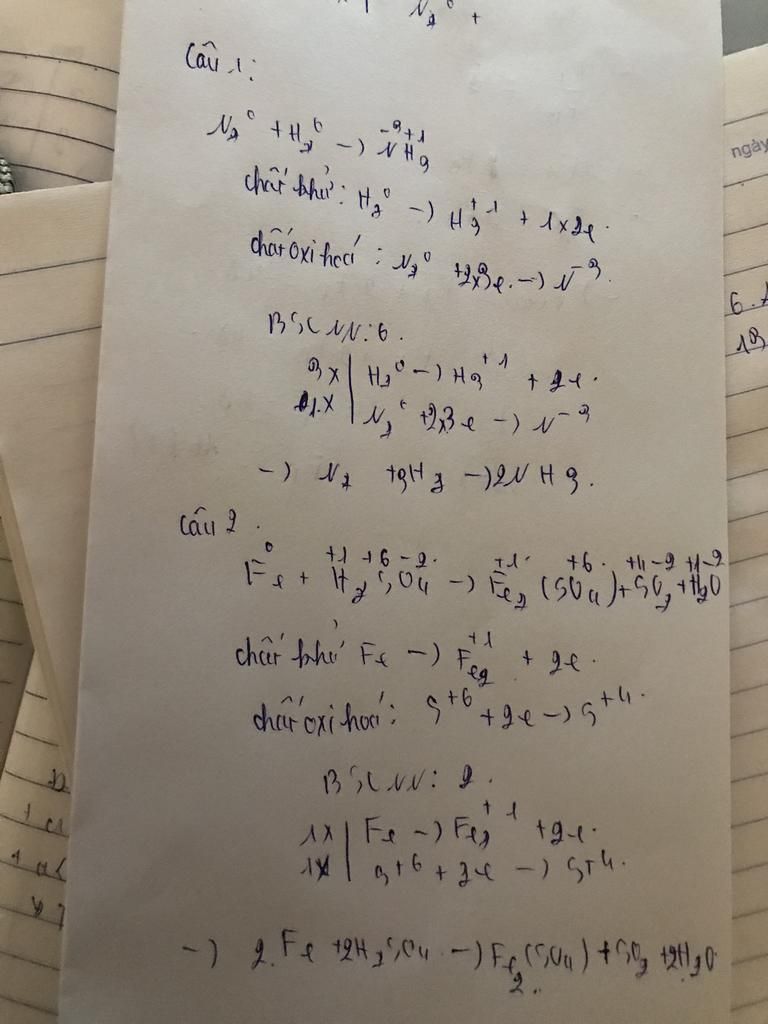 N₂⁰ +
Câu 1:
N₂⁰ + H₂⁰ -> N⁻³H₃⁺¹
chất khử: H₂⁰ -> H₃⁺¹ + 1x2e.
chất oxi hoá: N₂⁰ +2x3e. -> N⁻³.
BSCNN: 6.
3x | H₂⁰ -> H₃⁺¹ + 2e.
1.x | N₂⁰ +2x3e -> N⁻³
-> N₂ +3H₂ -> 2NH₃.
Câu 2.
Fe⁰ + H₂⁺¹S⁺⁶O₄⁻² -> Fe₂⁺¹(S⁺⁶O₄) + S⁺⁴O₂⁻² + H₂⁺¹O⁻²
chất khử Fe -> Fe₂⁺¹ + 2e.
chất oxi hoá: S⁺⁶ +2e -> S⁺⁴.
BSCNN: 2.
1x | Fe -> Fe₂⁺¹ +2e.
1x | S⁺⁶ + 2e -> S⁺⁴.
-> 2.Fe +2H₂SO₄ -> Fe₂(SO₄) + SO₂ +2H₂O
ngày
6.
13